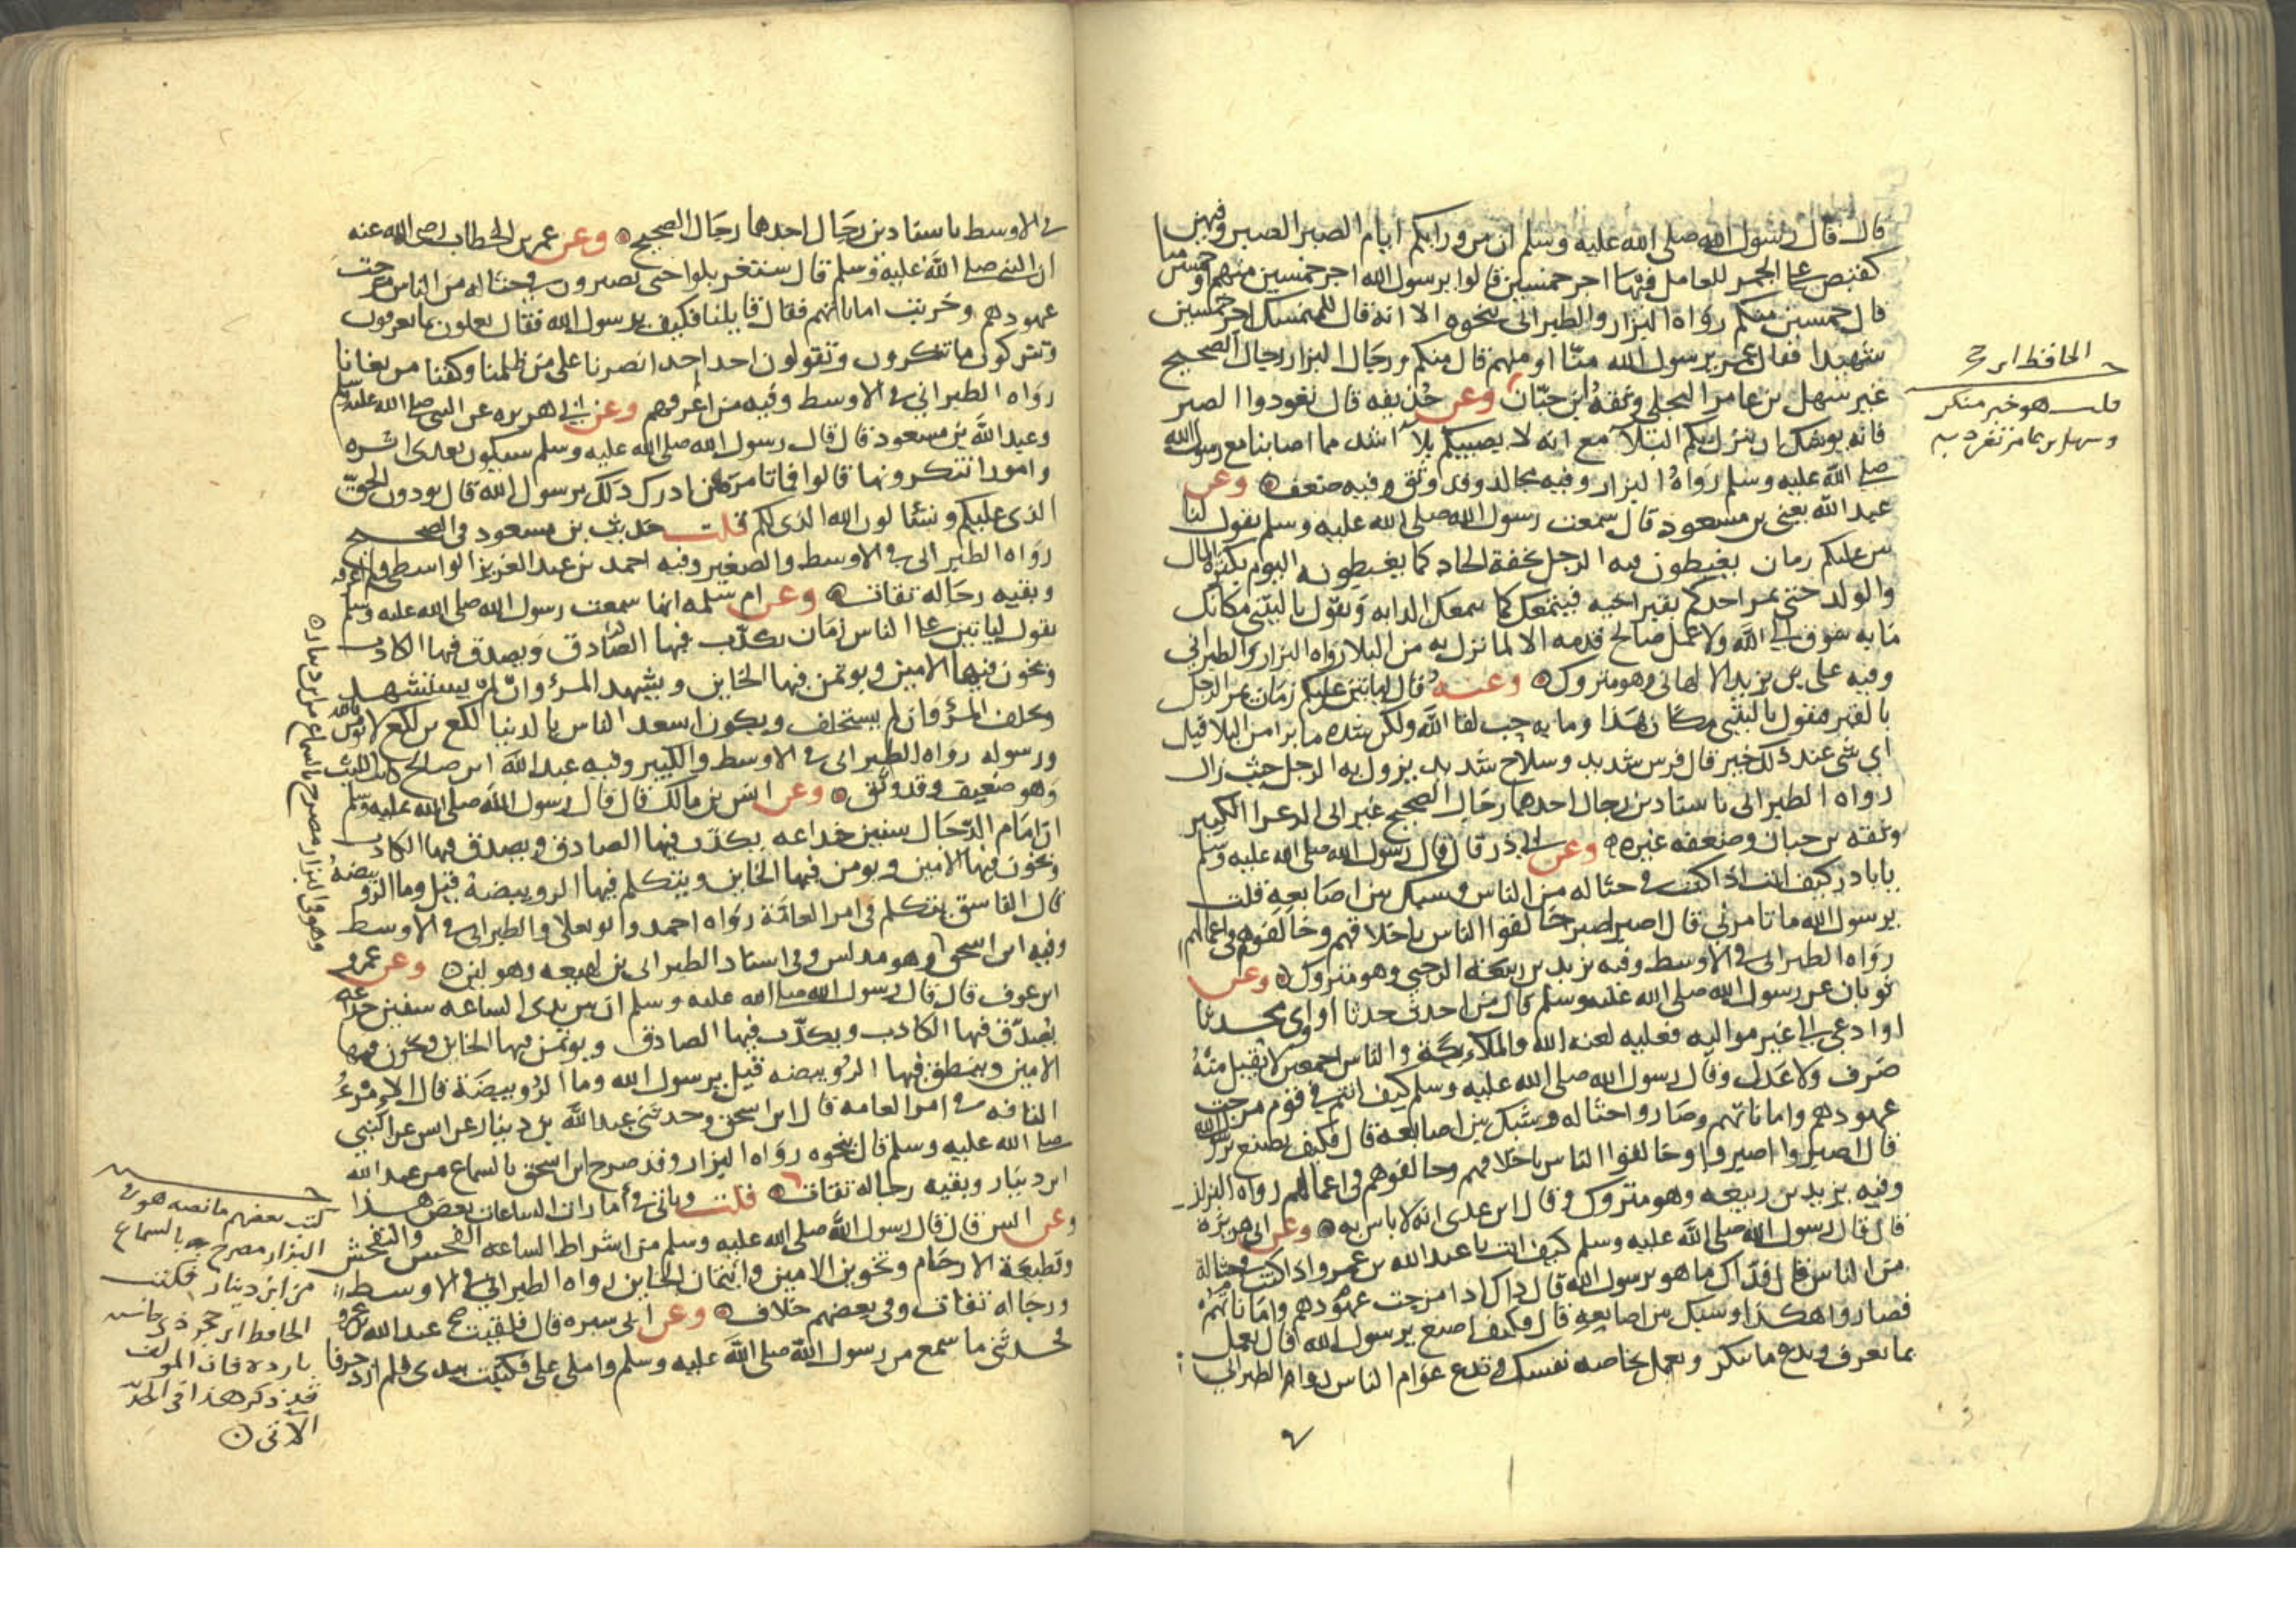 قال قال رسول الله صلى الله عليه وسلم ان من ورايكم ايام الصبر الصبر فيهن
كقبض على الجمر للعامل فيها اجر خمسين قالوا يرسول الله اجر خمسين منهم او خمسين منا
قال خمسين منكم رواه البزار والطبراني بنحوه الا انه قال للمتمسك اجر خمسين
شهيدا فقال عمر يرسول الله منا او منهم قال منكم ورجال البزار رجال الصحيح
غير سهل بن عامر البجلي وثقه ابن حبان وعن حذيفه قال تعودوا الصبر
فانه يوشك ان ينزل بكم البلآ مع انه لا يصيبكم بلآ اشد مما اصابنا مع رسول الله
صلى الله عليه وسلم رواه البزار وفيه مجالد وقد وثق وفيه ضعف وعن
عبد الله يعني بن مسعود قال سمعت رسول الله صلى الله عليه وسلم يقول لنا
تين عليكم زمان يغبطون فيه الرجل بخفة الحاد كما يغبطونه اليوم بكثرة المال
والولد حتى يمر احدكم بقبر اخيه فيتمعك كما تتمعك الدابه ويقول ياليتني مكانك
ما به شوق الى الله ولا عمل صالح قدمه الا لما نزل به من البلا رواه البزار والطبراني
وفيه علي بن يزيد الالهاني وهو متروك وعنه قال لياتين عليكم زمان يمر الرجل
بالقبر فيقول ياليتني مكان هذا وما به حب لقا الله ولكن شدة ما يرا من البلا قيل
اي شي عند ذلك خير قال فرس شديد وسلاح شديد يزول به الرجل حيث زال
رواه الطبراني باسنادين رجال احدهما رجال الصحيح غير ابي الزعرا الكبير
وثقه بن حبان وضعفه غيره وعن ابي ذر قال قال رسول الله صلى الله عليه وسلم
يابا ذر كيف انت اذا كنت في حثاله من الناس وشبك بين اصابعه قلت
يرسول الله ما تامرني قال اصبر اصبر خالقوا الناس باخلاقهم وخالفوهم في اعمالهم
رواه الطبراني في الاوسط وفيه يزيد بن ربيعة الرحبي وهو متروك وعن
ثوبان عن رسول الله صلى الله عليه وسلم قال من احدث حدثا او اوى محدثا
او ادعى الى غير مواليه فعليه لعنه الله والملايكة والناس اجمعين لا يقبل منه
صرف ولا عدل وقال رسول الله صلى الله عليه وسلم كيف انتم في قوم مرجت
عهودهم واماناتهم وصاروا حثاله وشبك بين اصابعه قال فكيف نصنع يرسول الله
قال اصبروا اصبروا وخالقوا الناس باخلاقهم وخالفوهم في اعمالهم رواه البزار
وفيه يزيد بن ربيعه وهو متروك وقال ابن عدي انه لا باس به وعن ابي هريرة
قال قال رسول الله صلى الله عليه وسلم كيف انت يا عبد الله بن عمرو اذا كنت في حثالة
من الناس قال فذاك ما هو يرسول الله قال ذاك اذا مرجت عهودهم واماناتهم
فصاروا هكذا وشبك بين اصابعه قال فكيف اصنع يرسول الله قال تعمل
بما تعرف وتدع ما تنكر وتعمل بخاصه نفسك وتدع عوام الناس رواه الطبراني
الحافظ ابن حجر
قلت هو خبر منكر
وسهل بن عامر تفرد به
في الاوسط باسنادين رجال احدهما رجال الصحيح وعن عمر بن الخطاب رضي الله عنه
ان النبي صلى الله عليه وسلم قال ستغربلوا حتى تصيرون في حثاله من الناس مرجت
عهودهم وخربت اماناتهم فقال قايلنا فكيف يرسول الله فقال تعملون بما تعرفون
وتتركون ما تنكرون وتقولون احد احد انصرنا على من ظلمنا وكفنا من بغانا
رواه الطبراني في الاوسط وفيه من لم اعرفهم وعن ابي هريره عن النبي صلى الله عليه وسلم
وعبد الله بن مسعود قال قال رسول الله صلى الله عليه وسلم سيكون بعدى اثره
وامورا تنكرونها قالوا فما تامر من ادرك ذلك يرسول الله قال يودون الحق
الذي عليكم وتسئالون الله الذي لكم قلت حديث بن مسعود في الصحيح
رواه الطبراني في الاوسط والصغير وفيه احمد بن عبد العزيز الواسطي ولم اعرفه
وبقيه رجاله ثقات وعن ام سلمه انها سمعت رسول الله صلى الله عليه وسلم
يقول لياتين على الناس زمان يكذب فيها الصادق ويصدق فيها الكاذب
ويخون فيها الامين ويوتمن فيها الخاين ويشهد المرء وان لم يستشهد
ويحلف المرؤ وان لم يستحلف ويكون اسعد الناس بالدنيا لكع بن لكع لا يومن بالله
ورسوله رواه الطبراني في الاوسط والكبير وفيه عبد الله ابن صالح كاتب الليث
وهو ضعيف وقد وثق وعن انس بن مالك قال قال رسول الله صلى الله عليه وسلم
ان امام الدجال سنين خداعه يكذب فيها الصادق ويصدق فيها الكاذب
ويخون فيها الامين ويومن فيها الخاين ويتكلم فيها الرويبضة قيل وما الرويبضة
قال الفاسق يتكلم في امر العامة رواه احمد وابو يعلى والطبراني في الاوسط
وفيه ابن اسحق وهو مدلس وفي اسناد الطبراني بن لهيعه وهو لين وعن عمرو
ابن عوف قال قال رسول الله صلى الله عليه وسلم ان بين يدى الساعه سنين خداعه
يصدق فيها الكاذب ويكذب فيها الصادق ويوتمن فيها الخاين ويخون فيها
الامين وينطق فيها الرويبضه قيل يرسول الله وما الرويبضة قال الامرؤ
التافه في امر العامه قال ابن اسحق وحدثني عبد الله بن دينار عن انس عن النبي
صلى الله عليه وسلم قال بنحوه رواه البزار وقد صرح ابن اسحق بالسماع من عبد الله
ابن دينار وبقيه رجاله ثقات قلت وياتي في أمارات الساعات بعض هذا
وعن انس قال قال رسول الله صلى الله عليه وسلم من اشراط الساعه الفحش والتفحش
وقطيعة الارحام وتخوين الامين وائتمان الخاين رواه الطبراني في الاوسط
ورجاله ثقات وفي بعضهم خلاف وعن ابي سبره قال فلقيت عبد الله بن عمرو
فحدثني ما سمع من رسول الله صلى الله عليه وسلم واملى علي فكتبت بيدي فلم ازد حرفا
وهو في البزار مصرح بالسماع من ابن دينار
كتب بعضهم ما نصه هو في
البزار مصرح به بالسماع
من ابن دينار فكتب
الحافظ ابن حجر
بارده فان المولف
قد ذكر هذا في
الاتي